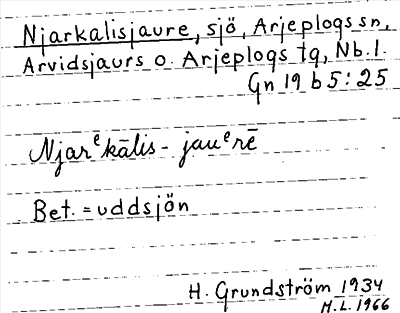 Njarkalisjaure, sjö, Arjeplogs sn,
Arvidsjaurs o. Arjeplogs tg, Nb. l.
Gn 19 b 5:25
Njarᵉkālis-jauᵉrē
Bet. = uddsjön
H. Grundström 1934
M.L. 1966